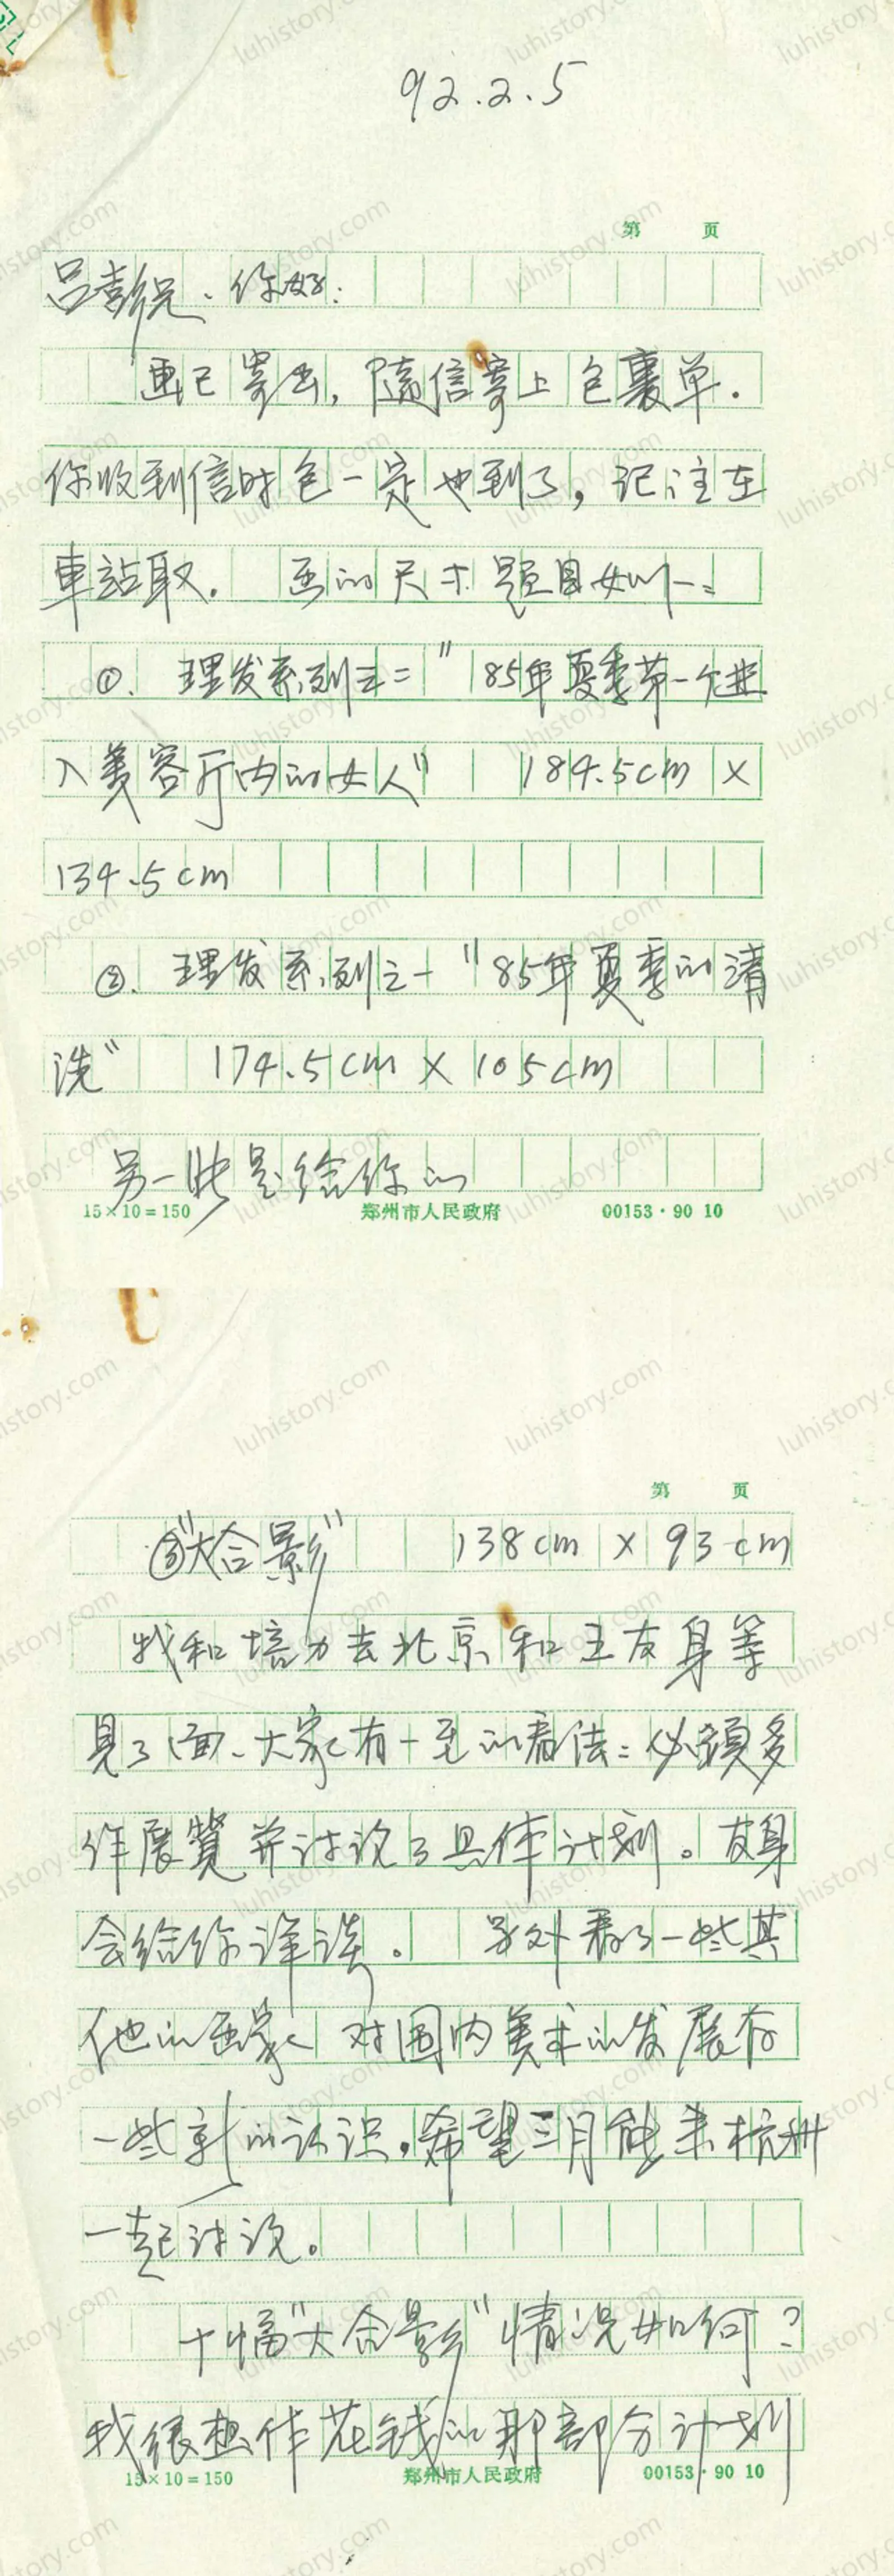 92.2.5
第 页
吕澎兄、你好:
画已寄出,随信寄上包裹单.
你收到信时包一定也到了,记注在
車站取. 画的尺寸题目如下:
①. 理发系列之二"85年夏季第一个进
入美容厅内的女人" 184.5cm ×
134.5cm
②. 理发系列之一"85年夏季的清
洗" 174.5cm × 105cm
另一张是给你的
15×10=150 郑州市人民政府 00153·90 10
第 页
③"大合影" 138cm × 93cm
我和培力去北京和王友身等
見了面、大家有一至的看法:必须多
作展覽并讨论了具体计划。友身
会给你详谈。 另外看了一些其
他的画家 对国内美术的发展有
一些新的认识,希望三月能来杭州
一起讨论。
十幅"大合影"情况如何?
我很想作花钱的那部分计划
15×10=150 郑州市人民政府 00153·90 10
luhistory.com